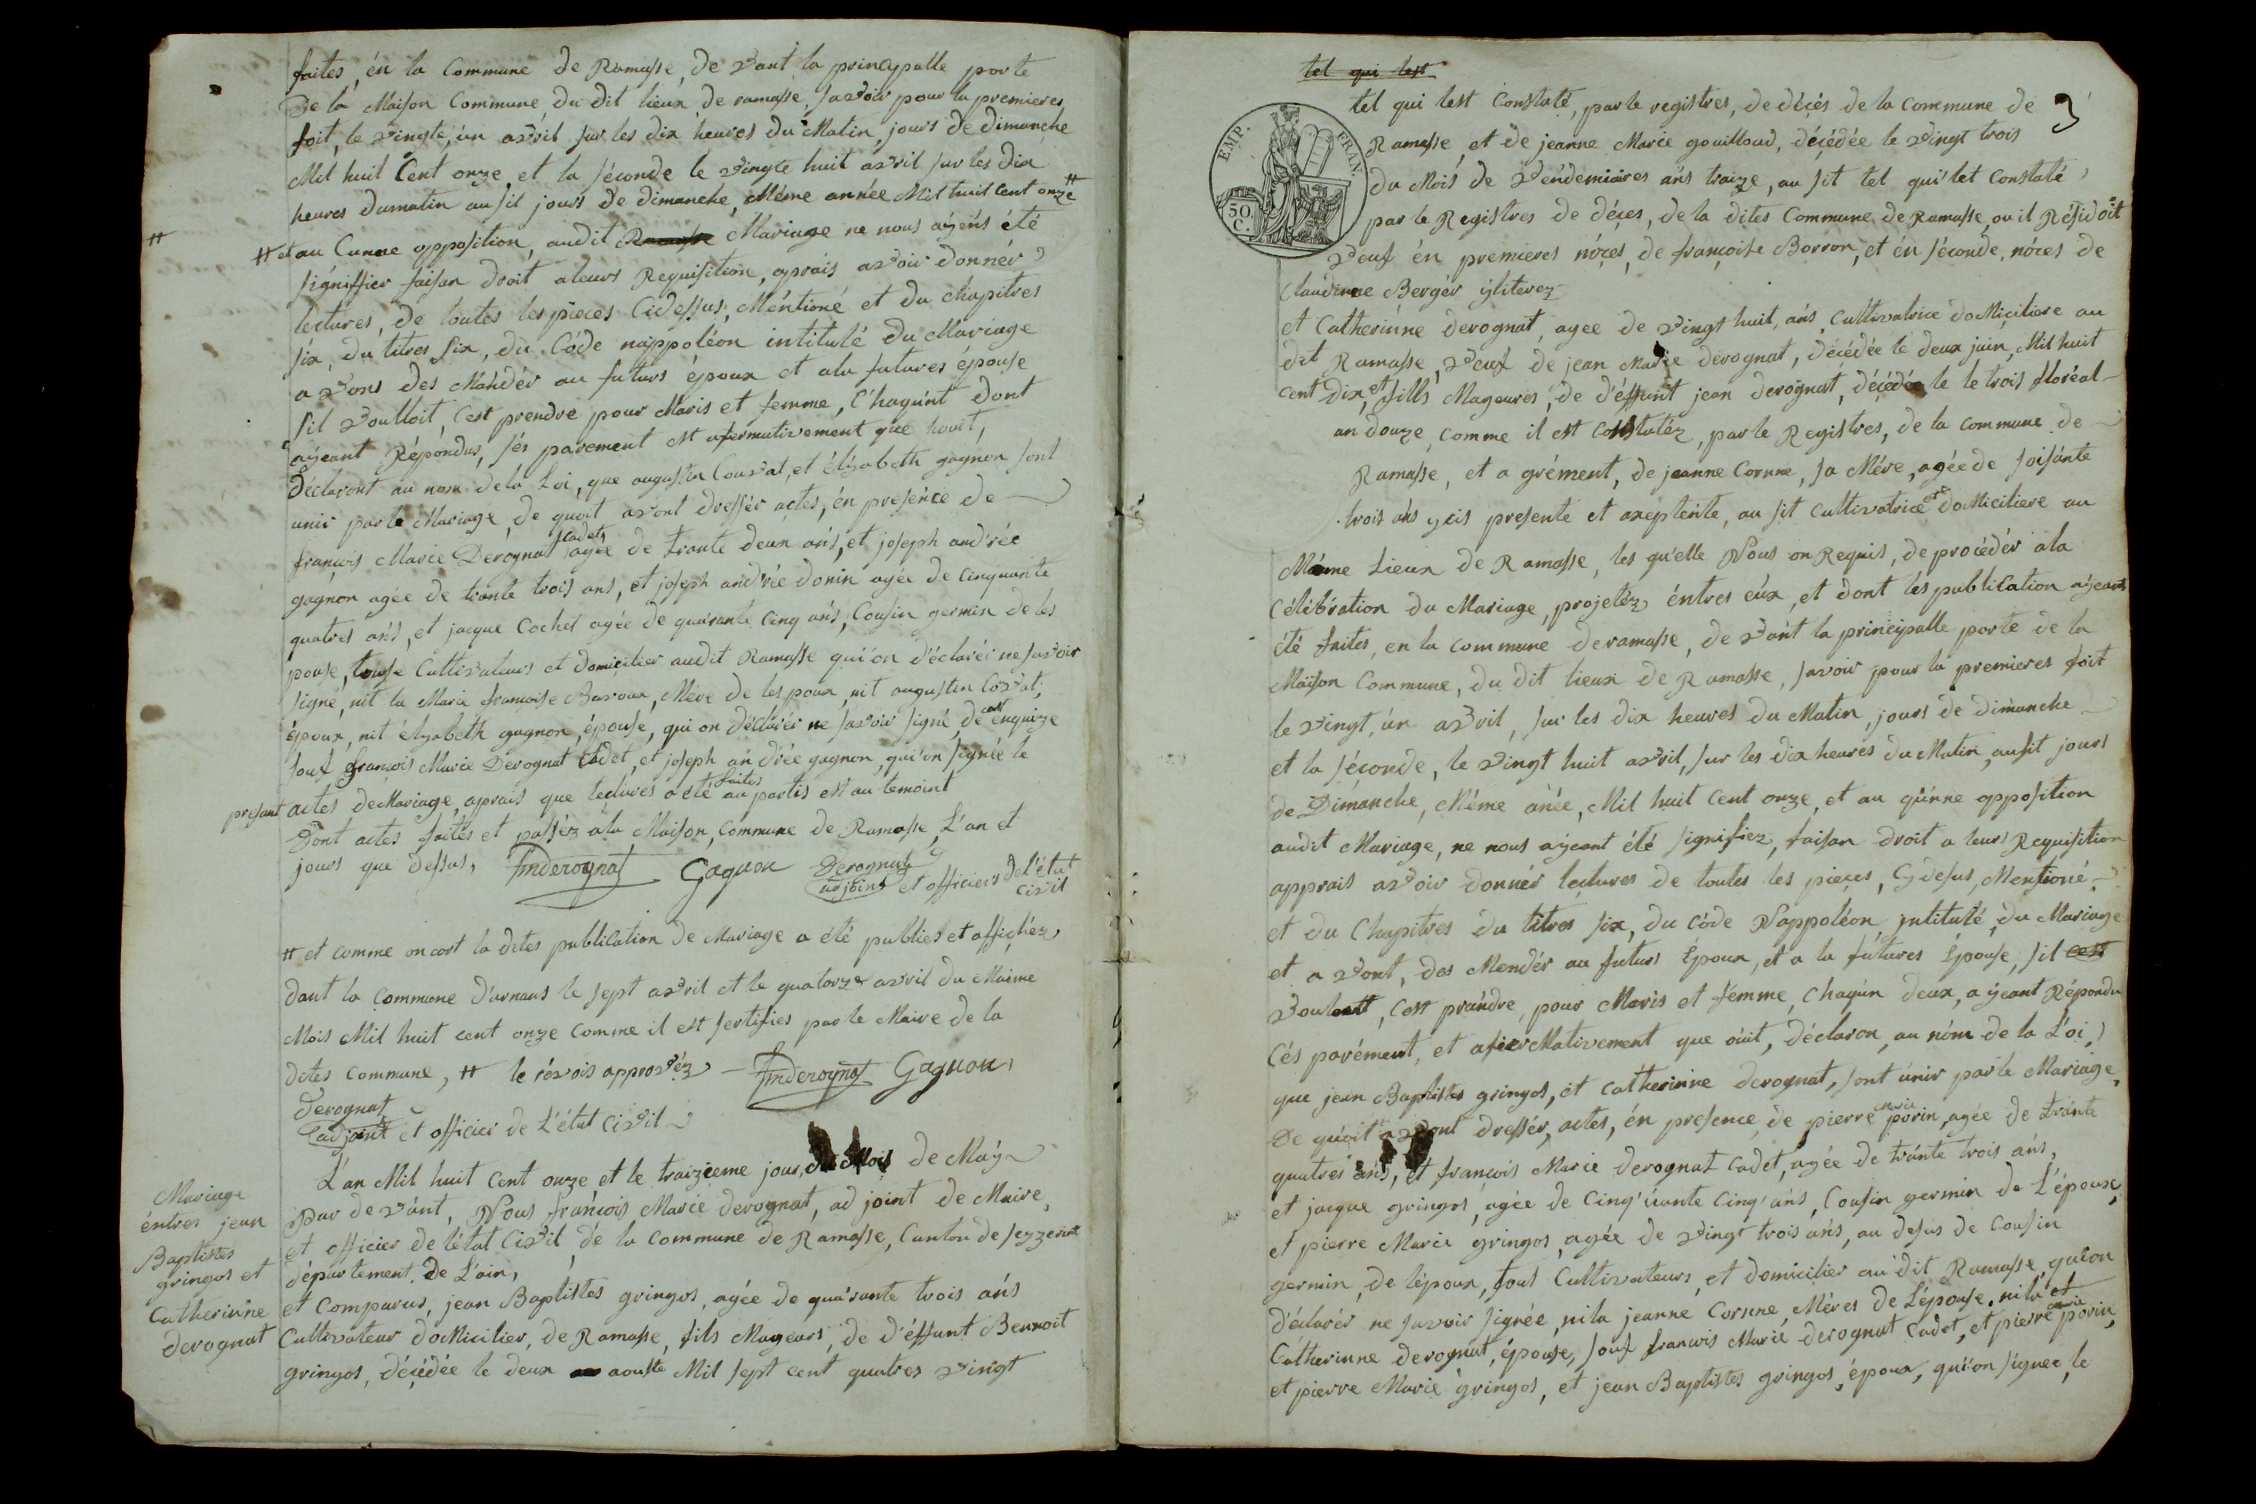 faites, én la Commune de Ramasse, de vant la principalle porte
De la Maison Commune du dit lieux de ramasse, savoir pour la premieres
foit, le vingte, ún avril sur les dix heures du Matin, jours de dimanche
Mil huit Cent onze, et la séconde le vingte huit avril sur les dix
heures dumatin ausit jours de dimanche, Méme année Mil huit cent onze #
#
# et au Cunne opposition, audit Mariage ne nous ayéns été
signiffier faisan droit aleurs Requisition, aprais avoir donnér
lectures, de toutes les pieces Cidessus, Mentioné et du chapitres
six, du titres six, du Códe nappoléon intitulé du Mariage
avons des Mandér au futurs époux et ala futures épouse
sil voulloit, Cest prendre pour Maris et femme, Chaqunt dont
aÿeant Répondus, sés parement est afermativement que houit,
Déclaront au nom dela Loi, que augustin Couvat, et élizabeth gagnon sont
unir par le Mariage, de quoit avont dressér actes, én presence de
françois Marie Derognat Cadet, agée de trante deux ans, et joseph andrée
gagnon agée de trante trois ans, et joseph andrée donin agée de Cinquante
quatres ans, et jacque Cochet agée de quarante Cinq ans, Cousin germin de les
pouse, touse Cultivateurs et domicilier audit Ramasse qui on déclarér ne savoir
signé, nit la Marie francoise Bavoux, Mere de lespoux, nit augustin Covat,
époux, nit élyzabeth gagnon, épouse, qui on déclarér ne savoir signé, de cest enquize
souf françois Marie Derognat Cadet, et joseph an drée gagnon, qui on signée le
présant actes deMariage, aprais que lectures a été faites au partis est au temoint
Dont actes faites et passéz ala Maison, Commune de Ramasse, L'an et
jours que dessus, fmderognat Gagnon Derognat
adjoint et officiers de l'état
civil
# et comme oncort la dites publication de Mariage a été publier et affichéz
dant la Commune D'arnans le sept avril et le quatorze avril du Maime
Mois Mil huit cent onze comme il est sertifies par le Maire de la
dites commune, # le révois approvéz — fmderognat Gagnon
Derognat
adjoint et officier de L'état Civil
L'an Mil huit Cent onze et le traizieme jour, du Mois de May
Mariage
éntres jean
Baptistes
gringos et
Catherinne
derognat
Par de vant, Nous françois Marie derognat, ad joint de Maire,
et officier de létat Civil, de la Commune de Ramasse, Canton de sezzeriat
département de L'ain,
et Comparus, jean Baptistes gringos, agée de quarante trois ans
Cultivateur doMicilier, de Ramasse, fils Mageurs, de d'éffunt Bennoit
gringos, décédée le deux aouste Mil sept cent quatres vingt
tel qui lest
3
EMP. FRAN.
50 C.
tel qui lest Constaté, par le registres, de décés de la Commune de
Ramasse, et de jeanne Marie gouilloud, décédée le vingt trois
du Mois de vendemiaires ans traize, au sit tel qui let Constaté
par le Registres de déçes, de la dites Commune de Ramasse, ou il Résidoit
veuf én premieres nóces, de françoise Borron, et én séconde, nóces de
Claudinne Bergér ÿliterez
et Catherinne derognat, agee de vingt huit, ans Cultivatrice doMiciliere au
dit Ramasse, veuf de jean Marie derognat, décédée le deux juin, Mil huit
cent Dix, et fills Mageures, de d'éffunt jean derognat, décédée le le trois floréal
an douze, comme il est constatéz, par le Registres, de la commune de
Ramasse, et a grément, de jeanne Cornne, sa Mére, agée de soisánte
trois ans ycis presente et axeptente, au sit Cultivatrice et doMiciliere au
Méme Lieux de Ramasse, les qu'elle Nous on Requis, de procédér ala
Célébration du Mariage, projetéz éntres eúx, et dont lés publication aÿeant
été faites, en la commune deramasse, de vant la principalle porte de la
Maison Commune, du dit lieux de Ramasse, savoir pour la premieres foit
le vingt, ún avril, sur les dix heures du Matin, jours de dimanche
et la séconde, le vingt huit avril, sur les dix heures du Matin, ausit jours
de Dimanche, Méme anée, Mil huit Cent onze, et au qúnne opposition
audit Mariage, ne nous aÿeant été signifiez, faisan droit a leurs Requisition
apprais avoir donnér lectures de toutes lés pieces, Cy desus, Mentioné
et du Chapitres du titres six, du códe Nappoléon, intitulé, du Mariage
et a vont, des Mendér au futurs Époux, et a la fútures Épouse, sil cest
voulent, Cest prandre, pour Maris et femme, Chaqún deux, aÿeant Répondu
Cés parément, et afierMativement que oúit, déclaron, au nóm de la Loi,
que jean Baptistes gringos, et Catherinne derognat, sont únir par le Mariage,
De quoit avont dressér, actes, én presence, de pierre marie porin, agée de tránte
quatres ans, et françois Marie derognat Cadet, agée de tránte trois ans,
et jacque gringos, agée de Cinq'úante Cinq' ans, Cousin germin de L'époux,
et pierre Marie gringos, agée de vingt trois ans, au desus de Cousin
germin, de l'époux, tous Cultivateurs, et domicilier au dit Ramasse, qui on
déclarér ne savoir signée, nila jeanne Cornne, Méres de L'épouse, ni la et
Catherinne derognat, épouse, souf francois Marie derognat Cadet, et pierre marie porin,
et pierre Marie gringos, et jean Baptistes gringos, époux, qui on signée, le